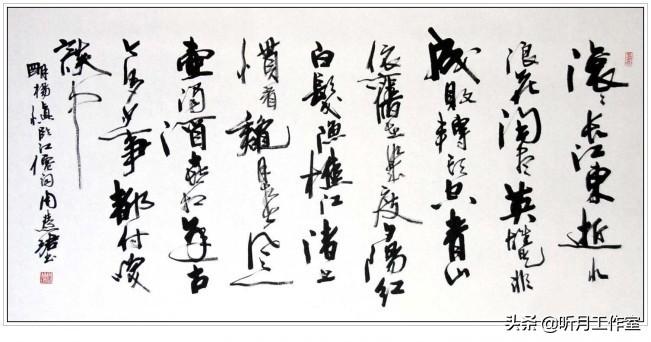 滚滚長江東逝水
浪花淘盡英雄是非
成敗轉頭空青山
依舊在幾度夕陽紅
白髮漁樵江渚上
慣看龝月春風一
壺濁酒喜相逢古
今多少事都付笑
談中
明楊慎臨江僊詞 周慧珺書
头条 @听月工作室